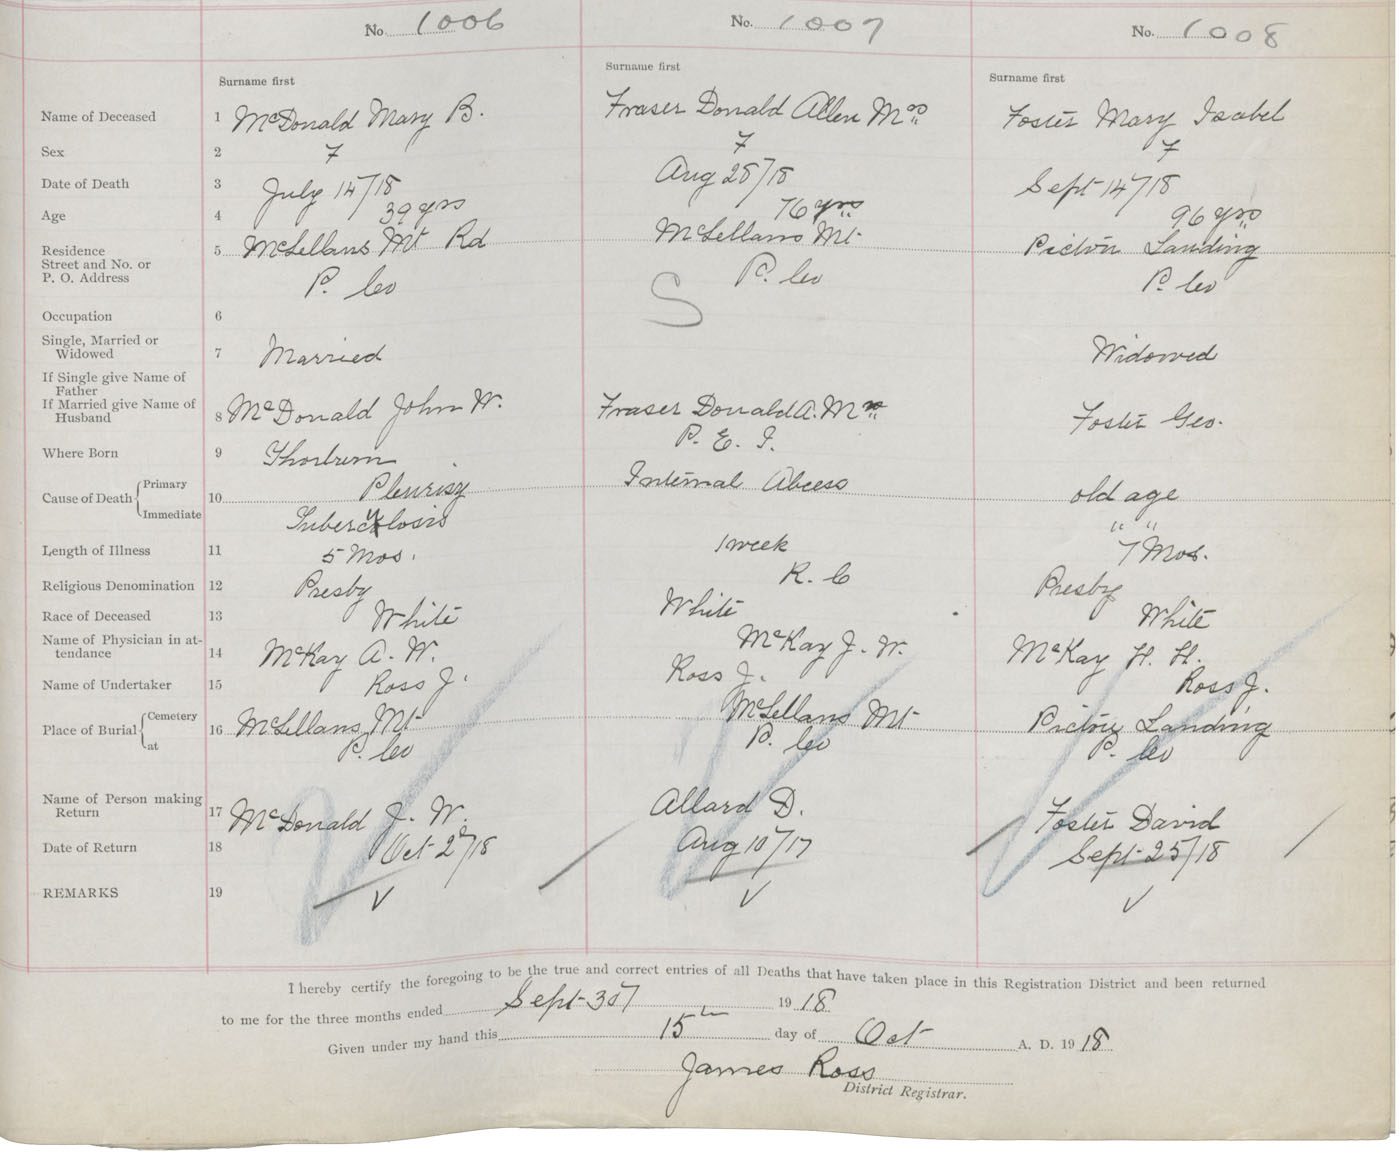 No. 1006
No. 1007
No. 1008
Surname first
Surname first
Surname first
Name of Deceased 1 McDonald Mary B. Fraser Donald Allen Mrs Foster Mary Isabel
Sex 2 F F F
Date of Death 3 July 14/18 Aug 28/18 Sept 14/18
Age 4 39 yrs 76 yrs 96 yrs
Residence
Street and No. or
P. O. Address
5 McLellans Mt Rd McLellans Mt Pictou Landing
P. Co P. Co P. Co
S
Occupation 6
Single, Married or
Widowed 7 Married Widowed
If Single give Name of
Father
If Married give Name of
Husband 8 McDonald John W. Fraser Donald A. Mrs Foster Geo.
Where Born 9 Thorburn P. E. I.
Cause of Death { Primary 10 Pleurisy Internal Abcess old age
Immediate Tuberculosis " "
Length of Illness 11 5 Mos. 1 week 7 Mos.
Religious Denomination 12 Presby R. C Presby
Race of Deceased 13 White White White
Name of Physician in at-
tendance 14 McKay A. W. McKay J. W. McKay H. H.
Name of Undertaker 15 Ross J. Ross J. Ross J.
Place of Burial { Cemetery 16 McLellans Mt McLellans Mt Pictou Landing
at P. Co P. Co P. Co
Name of Person making
Return 17 McDonald J. W. Allard D. Foster David
Date of Return 18 Oct 2/18 Aug 10/17 Sept 25/18
REMARKS 19
I hereby certify the foregoing to be the true and correct entries of all Deaths that have taken place in this Registration District and been returned
to me for the three months ended Sept 30 1918
Given under my hand this 15th day of Oct A. D. 1918
James Ross
District Registrar.